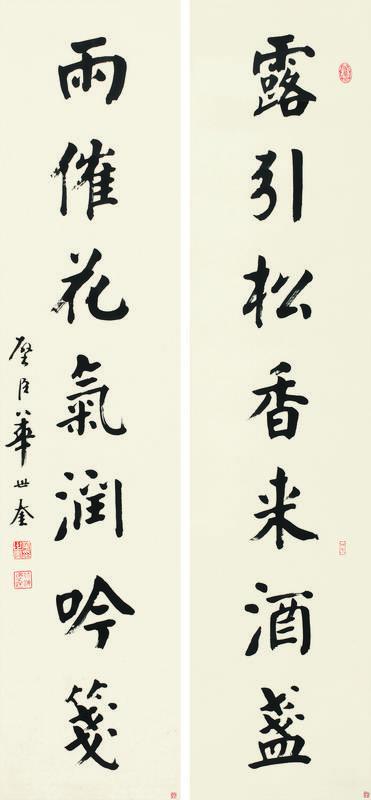 露引松香来酒盏
雨催花氣潤吟箋
璧臣華世奎